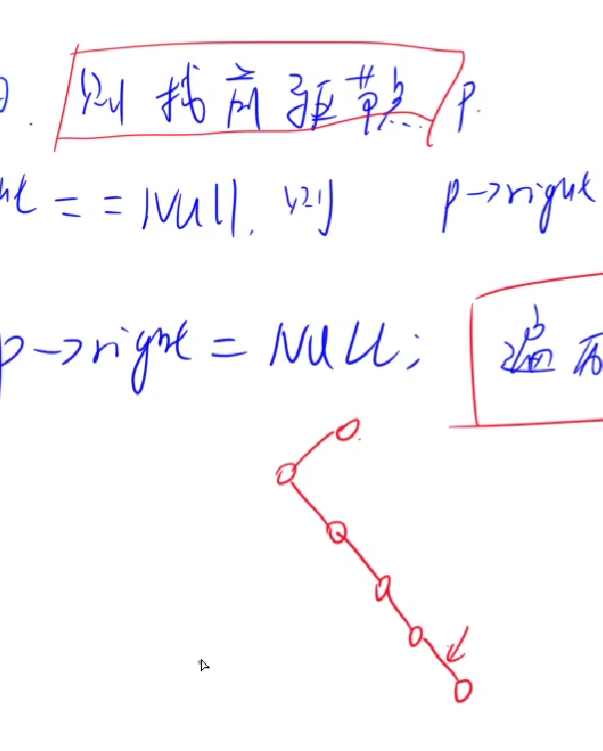 则找前驱节点 p.
== Null, 则 p->right
p->right = NULL; 遍